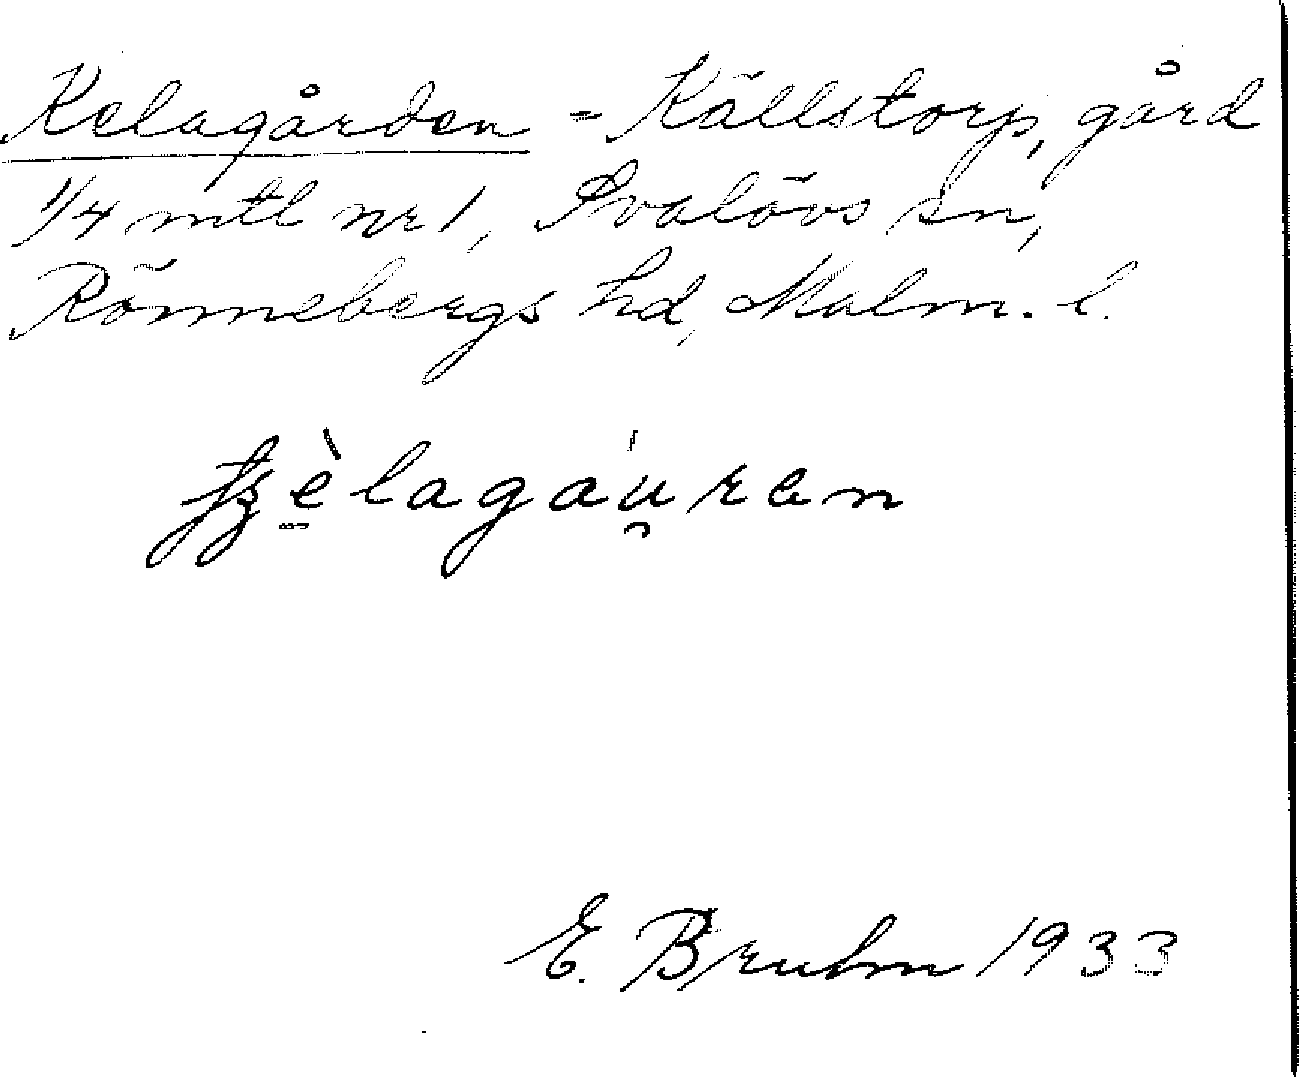 Kelagården = Källstorp, gård
1/4 mtl nr 1, Svalövs sn,
Rönnebergs hd, Malm. l.
tʒè̱lagáu̯ren
E. Bruhn 1933